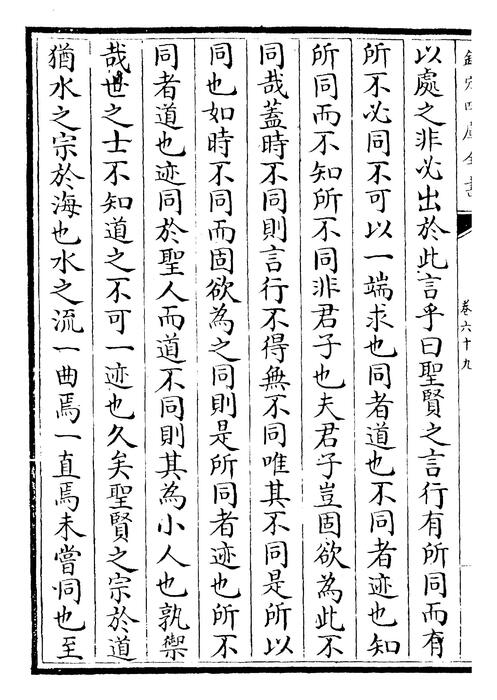 欽定四庫全書
卷六十九
以處之非必出於此言乎曰聖賢之言行有所同而有
所不必同不可以一端求也同者道也不同者迹也知
所同而不知所不同非君子也夫君子豈固欲為此不
同哉蓋時不同則言行不得無不同唯其不同是所以
同也如時不同而固欲為之同則是所同者迹也所不
同者道也迹同於聖人而道不同則其為小人也孰禦
哉世之士不知道之不可一迹也久矣聖賢之宗於道
猶水之宗於海也水之流一曲焉一直焉未嘗同也至